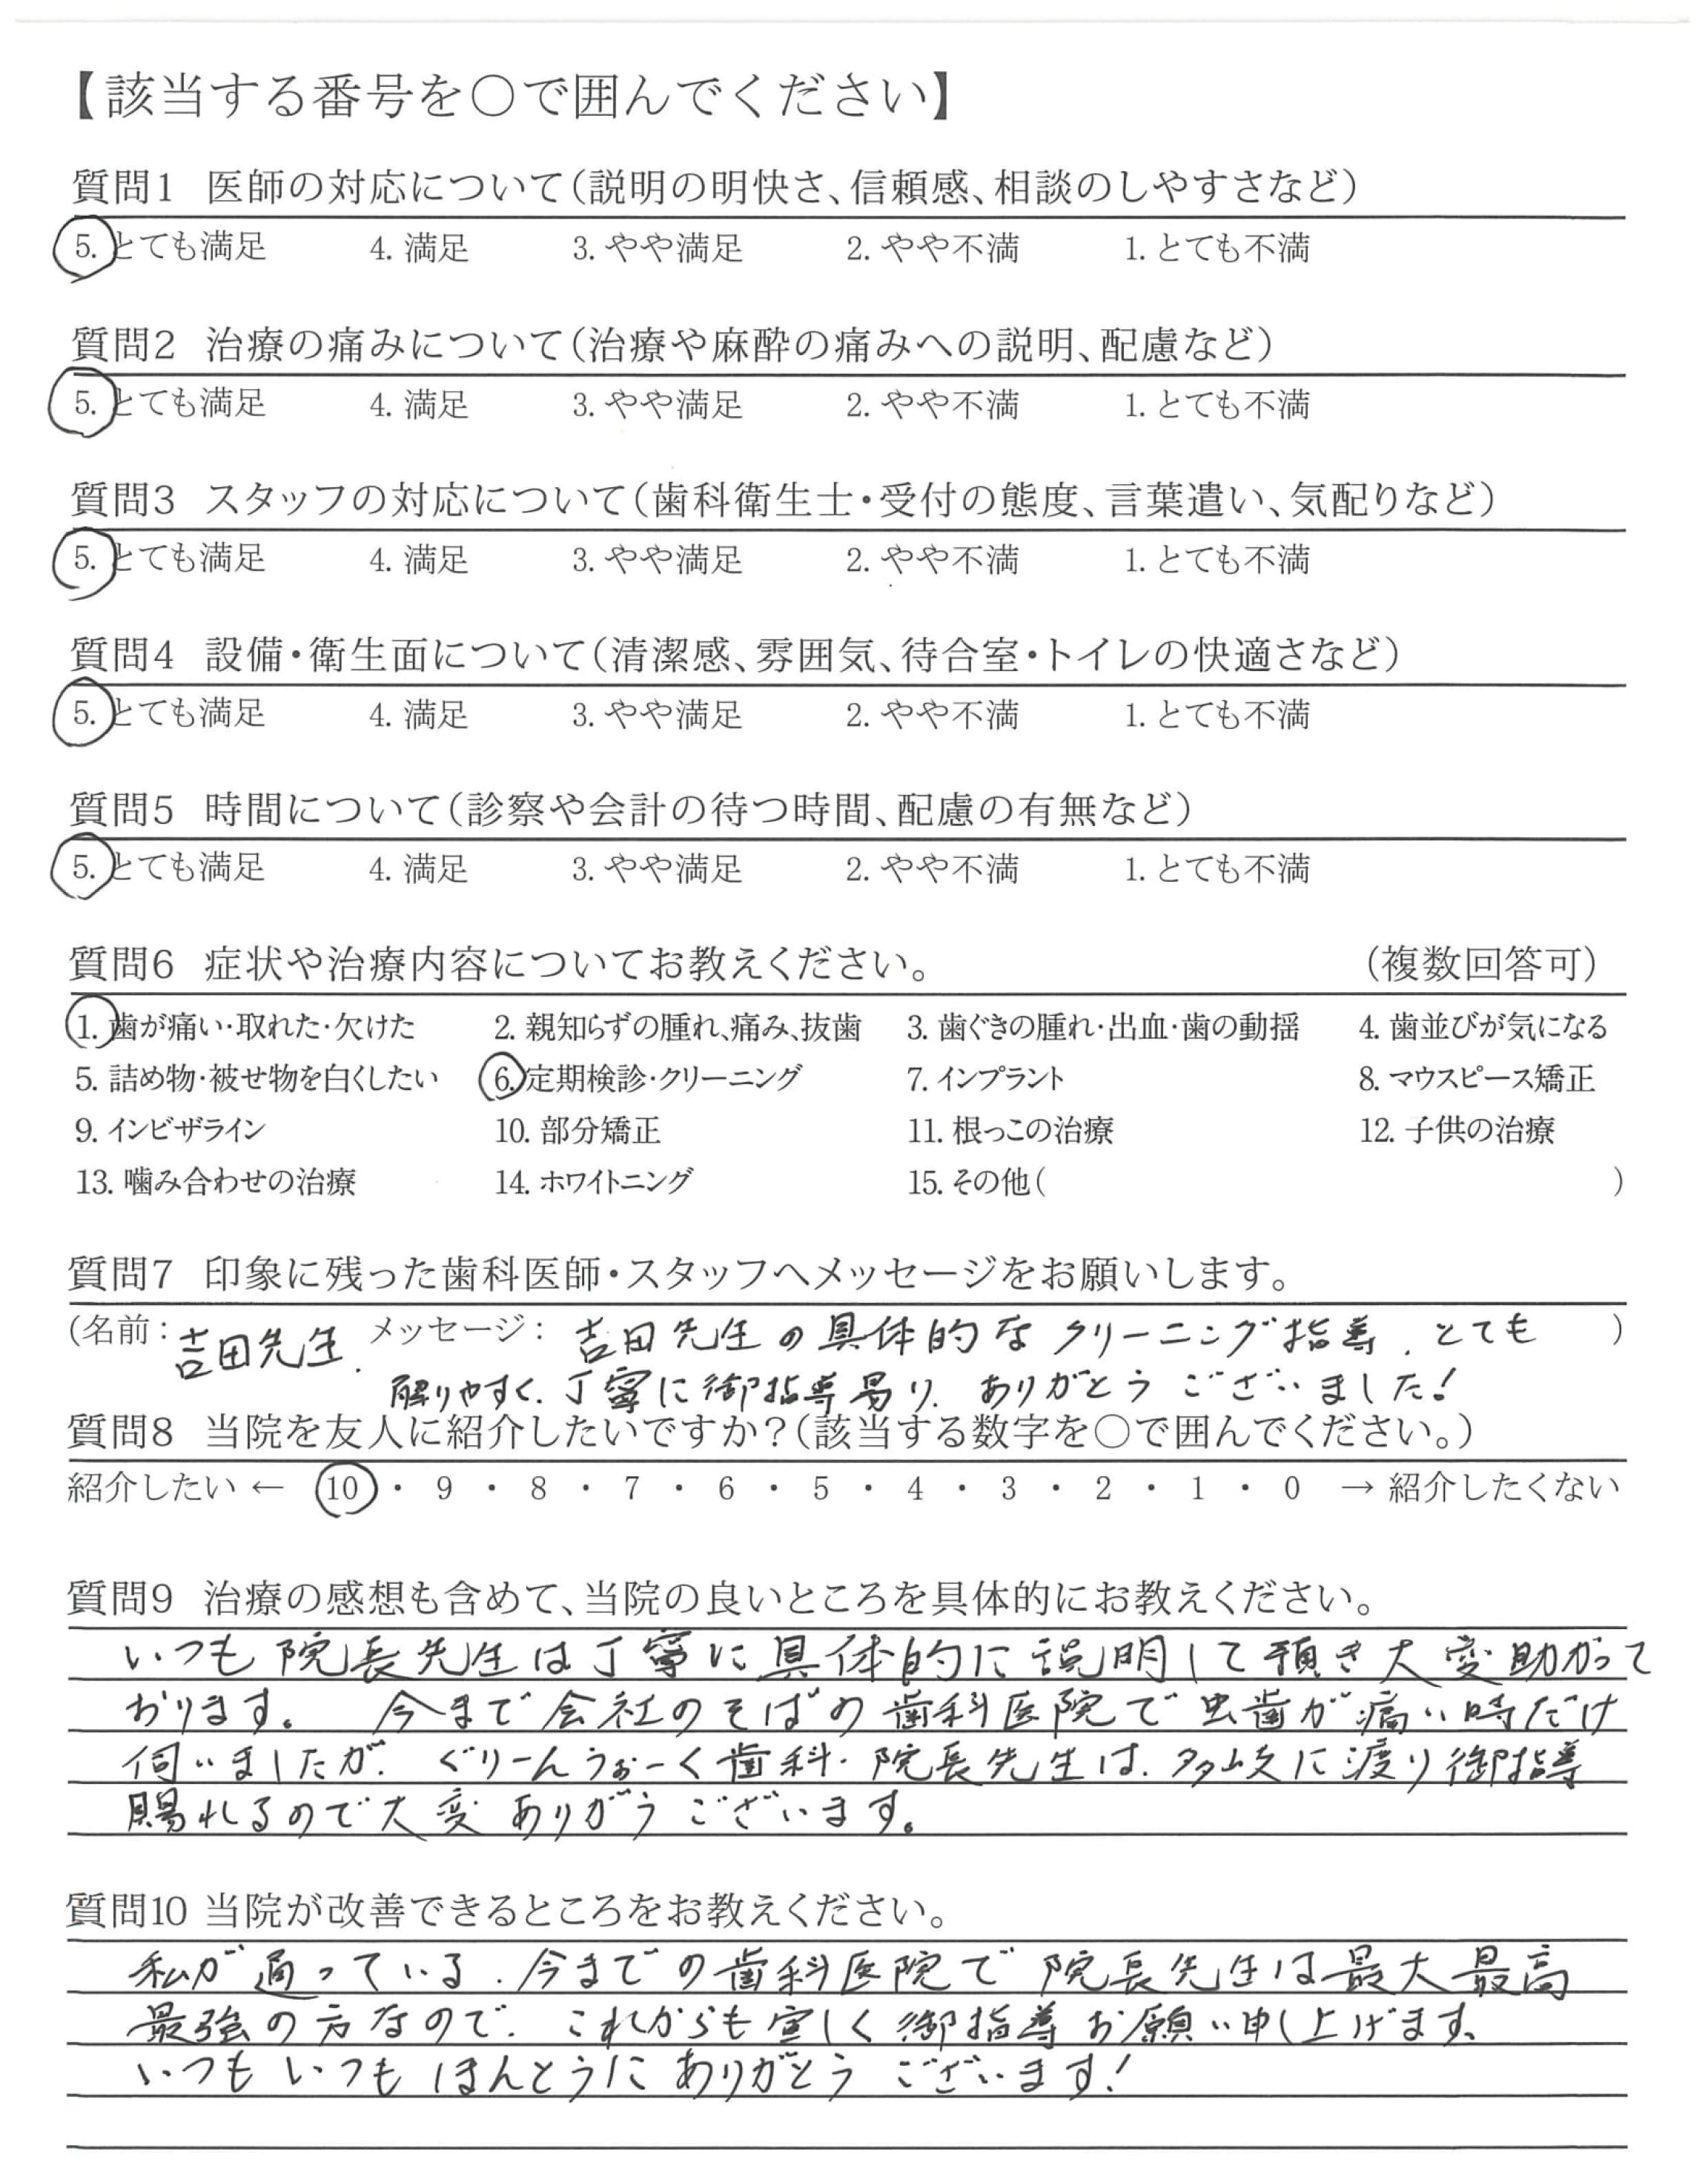 【該当する番号を○で囲んでください】
質問1 医師の対応について(説明の明快さ、信頼感、相談のしやすさなど)
5. とても満足 4. 満足 3. やや満足 2. やや不満 1. とても不満
質問2 治療の痛みについて(治療や麻酔の痛みへの説明、配慮など)
5. とても満足 4. 満足 3. やや満足 2. やや不満 1. とても不満
質問3 スタッフの対応について(歯科衛生士・受付の態度、言葉遣い、気配りなど)
5. とても満足 4. 満足 3. やや満足 2. やや不満 1. とても不満
質問4 設備・衛生面について(清潔感、雰囲気、待合室・トイレの快適さなど)
5. とても満足 4. 満足 3. やや満足 2. やや不満 1. とても不満
質問5 時間について(診察や会計の待つ時間、配慮の有無など)
5. とても満足 4. 満足 3. やや満足 2. やや不満 1. とても不満
質問6 症状や治療内容についてお教えください。 (複数回答可)
1. 歯が痛い・取れた・欠けた 2. 親知らずの腫れ、痛み、抜歯 3. 歯ぐきの腫れ・出血・歯の動揺 4. 歯並びが気になる
5. 詰め物・被せ物を白くしたい 6. 定期検診・クリーニング 7. インプラント 8. マウスピース矯正
9. インビザライン 10. 部分矯正 11. 根っこの治療 12. 子供の治療
13. 噛み合わせの治療 14. ホワイトニング 15. その他( )
質問7 印象に残った歯科医師・スタッフへメッセージをお願いします。
(名前: 吉田先生. メッセージ: 吉田先生の具体的なクリーニング指導、とても )
解りやすく、丁寧に御指導賜り、ありがとうございました!
質問8 当院を友人に紹介したいですか?(該当する数字を○で囲んでください。)
紹介したい ← 10 ・ 9 ・ 8 ・ 7 ・ 6 ・ 5 ・ 4 ・ 3 ・ 2 ・ 1 ・ 0 → 紹介したくない
質問9 治療の感想も含めて、当院の良いところを具体的にお教えください。
いつも院長先生は丁寧に具体的に説明して頂き大変助かって
おります。 今まで会社のそばの歯科医院で虫歯が痛い時だけ
伺いましたが、ぐりーんうぉーく歯科・院長先生は、多岐に渡り御指導
賜れるので大変ありがうございます。
質問10 当院が改善できるところをお教えください。
私が通っている、今までの歯科医院で院長先生は最大最高
最強の方なので、これからも宜しく御指導お願い申し上げます。
いつもいつもほんとうにありがとうございます!